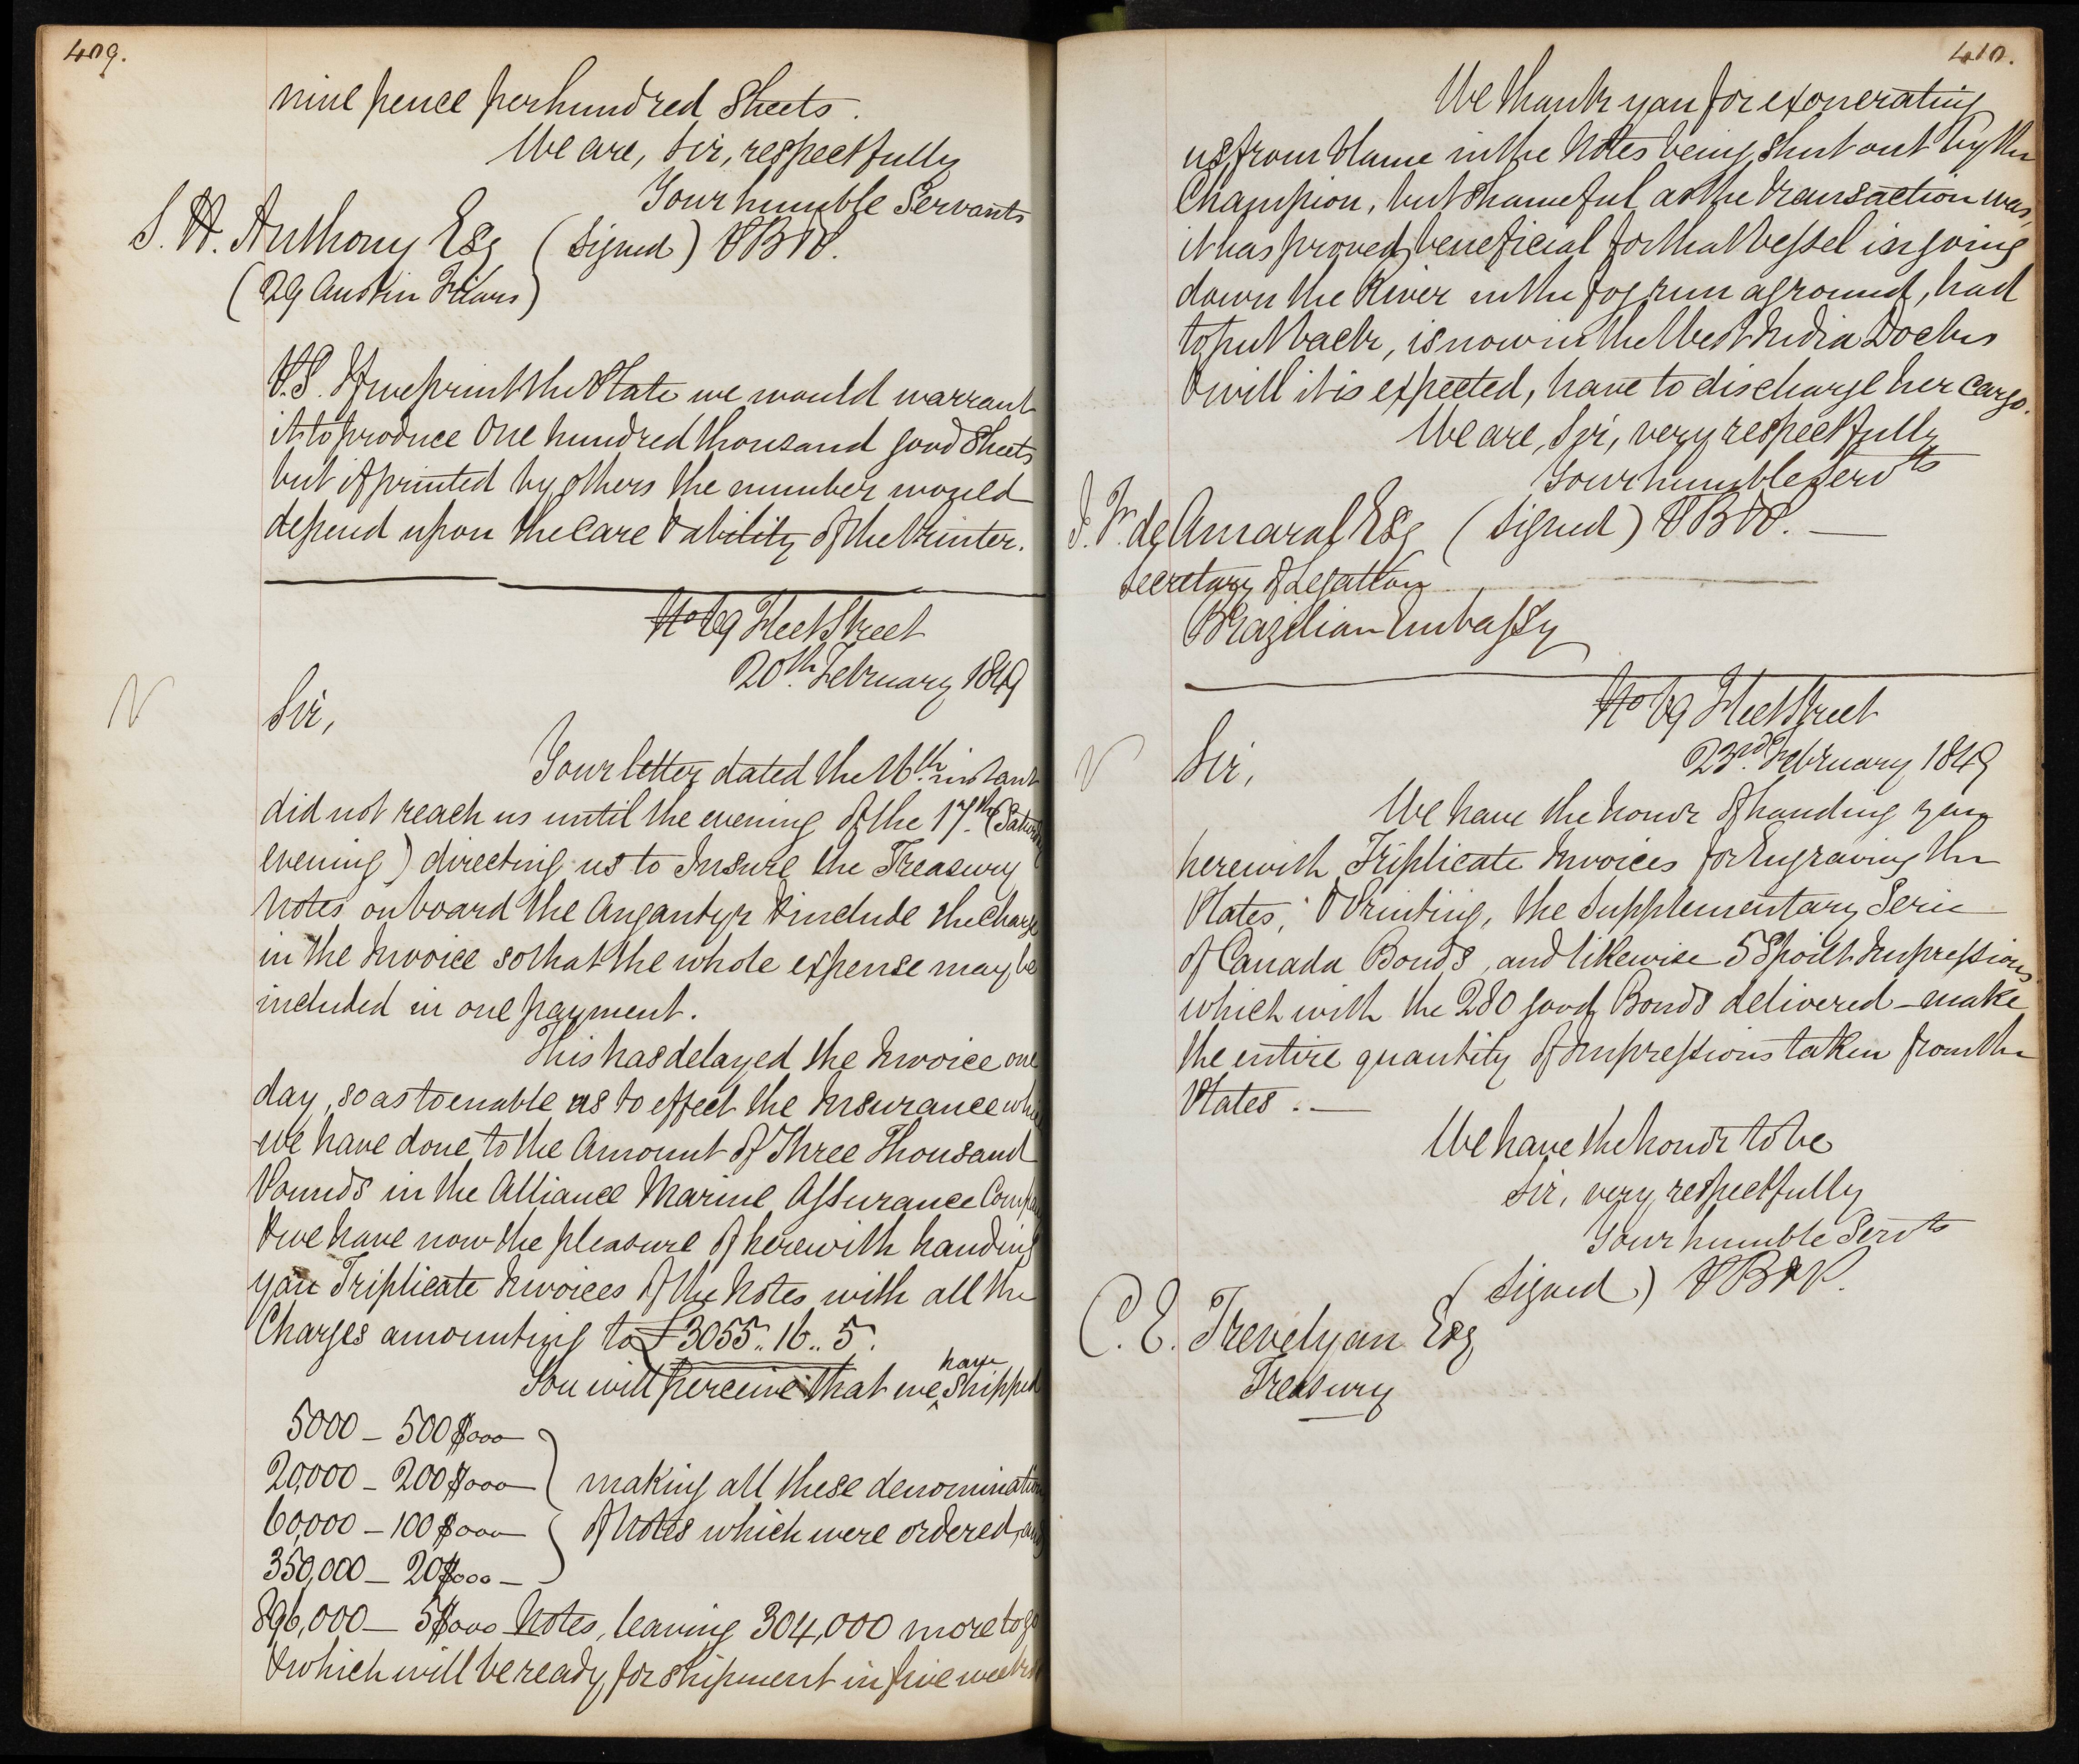 409.
nine pence per hundred Sheets.
We are, Sir, respectfully
Your humble Servants
S. H. Anthony Esq (signed) PB&P.
(29 Austin Friars)
P.S. If we print the Plate we would warrant
it to produce One hundred thousand good Sheets
but if printed by others the number would
depend upon the care & ability of the Printer.
No 69 Fleet Street
20th. February 1849
Sir,
Your letter dated the 16th. instant
did not reach us until the evening of the 17th (Saturday
evening) directing us to Insure the Treasury
Notes on board the Angantyr & include the charge
in the Invoice so that the whole expense may be
included in one payment.
This has delayed the Invoice one
day, so as to enable us to effect the Insurance which
we have done to the Amount of Three Thousand
Pounds in the Alliance Marine Assurance Company
& we have now the pleasure of herewith handing
you Triplicate Invoices of the Notes with all the
Charges amounting to £3055..16..5.
You will perceive that we have shipped
5000 – 500$000
20,000 – 200$000
60,000 – 100$000
350,000 – 20$000 –
making all these denominations
of Notes which were ordered, and
896,000 – 5$000 Notes, leaving 304,000 more to go
& which will be ready for shipment in five weeks
410.
We thank you for exonerating
us from blame in the Notes being shut out by the
Champion, but shameful as the transaction was,
it has proved beneficial for that Vessel in going
down the River in the fog run aground, had
to put back, is now in the West India Docks
& will it is expected, have to discharge her cargo.
We are, Sir, very respectfully
Your humble Servts
de Amaral Esq (signed) PB&P. —
Secretary of Legation
Brazilian Embassy
No 69 Fleet Street
23rd. February 1849
Sir,
We have the honor of handing you
herewith Triplicate Invoices for Engraving the
Plates, & Printing, the Supplementary Serie
of Canada Bonds, and likewise 5 Spoilt Impressions
which with the 280 good Bonds delivered – make
the entire quantity of Impressions taken from the
Plates. —
We have the honor to be
Sir, very respectfully
Your humble Servts
(signed) PB&P.
C. E. Trevelyan Esq
Treasury